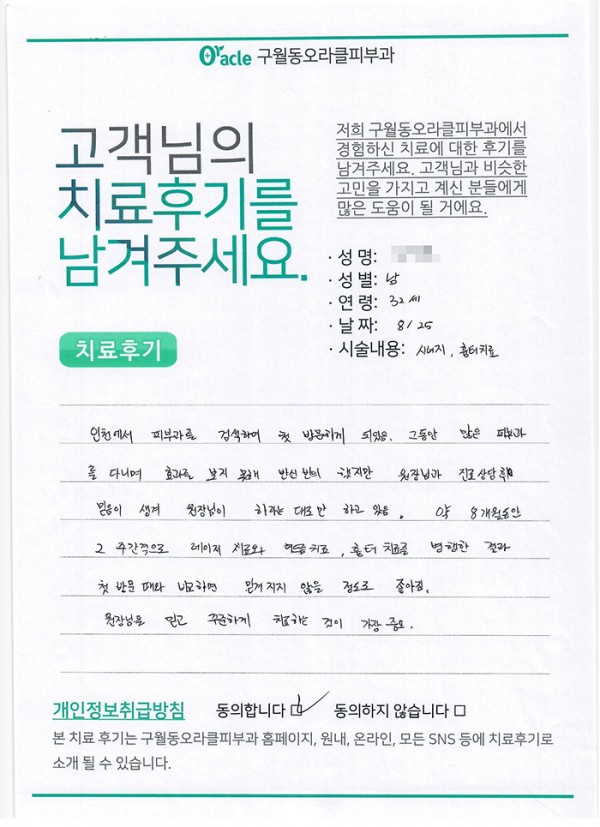 Oracle 구월동오라클피부과
고객님의
치료후기를
남겨주세요.
저희 구월동오라클피부과에서
경험하신 치료에 대한 후기를
남겨주세요. 고객님과 비슷한
고민을 가지고 계신 분들에게
많은 도움이 될 거에요.
· 성 명:
· 성 별: 남
· 연 령: 32세
· 날 짜: 8/25
· 시술내용: 시너지, 흉터치료
치료후기
인천에서 피부과를 검색하여 첫 방문하게 되었음. 그동안 많은 피부과
를 다니며 효과를 보지 못해 반신 반의 했지만 원장님과 진료상담 후
믿음이 생겨 원장님이 하라는 대로만 하고 있음. 약 8개월동안
2주간격으로 레이저 치료와 연금치료, 흉터 치료를 병행한 결과
첫 방문 때와 비교하면 믿겨지지 않을 정도로 좋아짐.
원장님을 믿고 꾸준하게 치료하는 것이 가장 중요.
개인정보취급방침 동의합니다 동의하지 않습니다
본 치료 후기는 구월동오라클피부과 홈페이지, 원내, 온라인, 모든 SNS 등에 치료후기로
소개 될 수 있습니다.